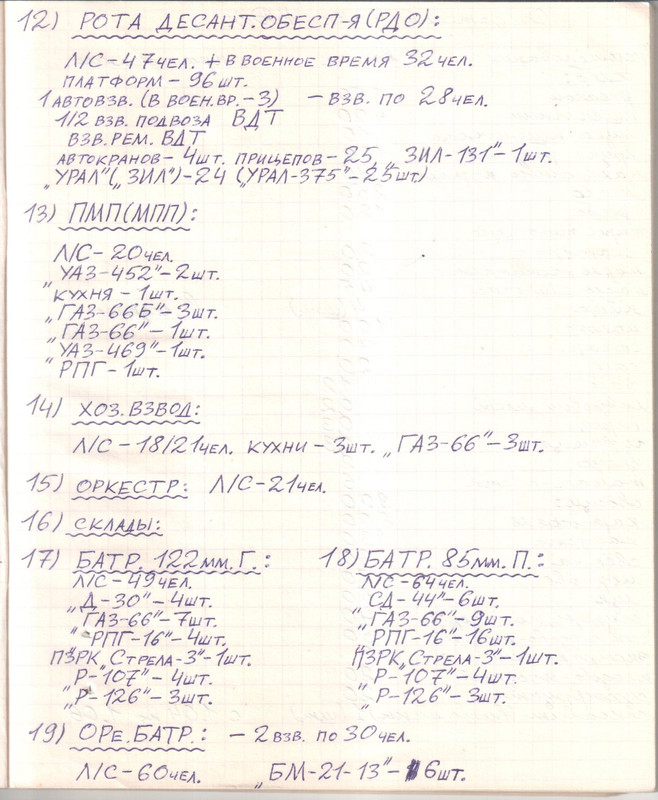 12) РОТА ДЕСАНТ.ОБЕСП-Я(РДО):
Л/С-47ЧЕЛ. + В ВОЕННОЕ ВРЕМЯ 32ЧЕЛ.
ПЛАТФОРМ - 96ШТ.
1АВТОВЗВ. (В ВОЕН.ВР.-3) - ВЗВ. ПО 28ЧЕЛ.
1/2 ВЗВ. ПОДВОЗА ВДТ
ВЗВ.РЕМ. ВДТ
АВТОКРАНОВ-4ШТ. ПРИЦЕПОВ-25 „ЗИЛ-131"-1ШТ.
„УРАЛ"(„ЗИЛ")-24 („УРАЛ-375"-25ШТ)
13) ПМП(МПП):
Л/С-20ЧЕЛ.
„УАЗ-452"-2ШТ.
КУХНЯ-1ШТ.
„ГАЗ-66Б"-3ШТ.
„ГАЗ-66"-1ШТ.
„УАЗ-469"-1ШТ.
РПГ-1ШТ.
14) ХОЗ.ВЗВОД:
Л/С-18/21ЧЕЛ. КУХНИ-3ШТ. „ГАЗ-66"-3ШТ.
15) ОРКЕСТР: Л/С-21ЧЕЛ.
16) СКЛАДЫ:
17) БАТР. 122ММ.Г.:
Л/С-49ЧЕЛ.
„Д-30"-4ШТ.
„ГАЗ-66"-7ШТ.
„РПГ-16"-4ШТ.
ПЗРК„СТРЕЛА-3"-1ШТ.
„Р-107"-4ШТ.
„Р-126"-3ШТ.
18) БАТР. 85ММ.П.:
Л/С-64ЧЕЛ.
„СД-44"-6ШТ.
„ГАЗ-66"-9ШТ.
„РПГ-16"-16ШТ.
ПЗРК„СТРЕЛА-3"-1ШТ.
„Р-107"-4ШТ.
„Р-126"-3ШТ.
19) ОРЕ.БАТР.: - 2 ВЗВ. ПО 30ЧЕЛ.
Л/С-60ЧЕЛ. „БМ-21-13"-6ШТ.